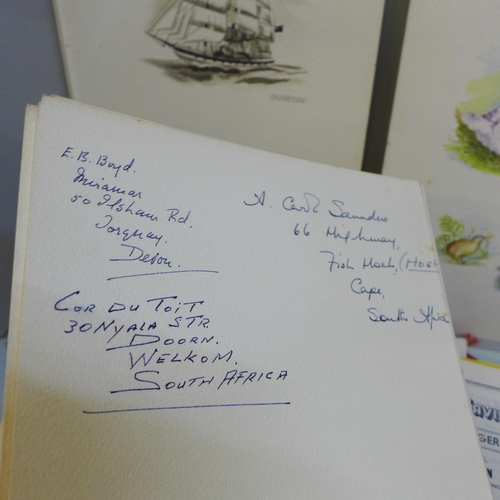 E. B. Boyd.
Miramar
50 Ilsham Rd.
Torquay.
Devon.
A. Saunders
66 Highway,
Fish Hoek,
Cape,
South Africa
COR DU TOIT
30 NYALA STR
DOORN.
WELKOM.
SOUTH AFRICA